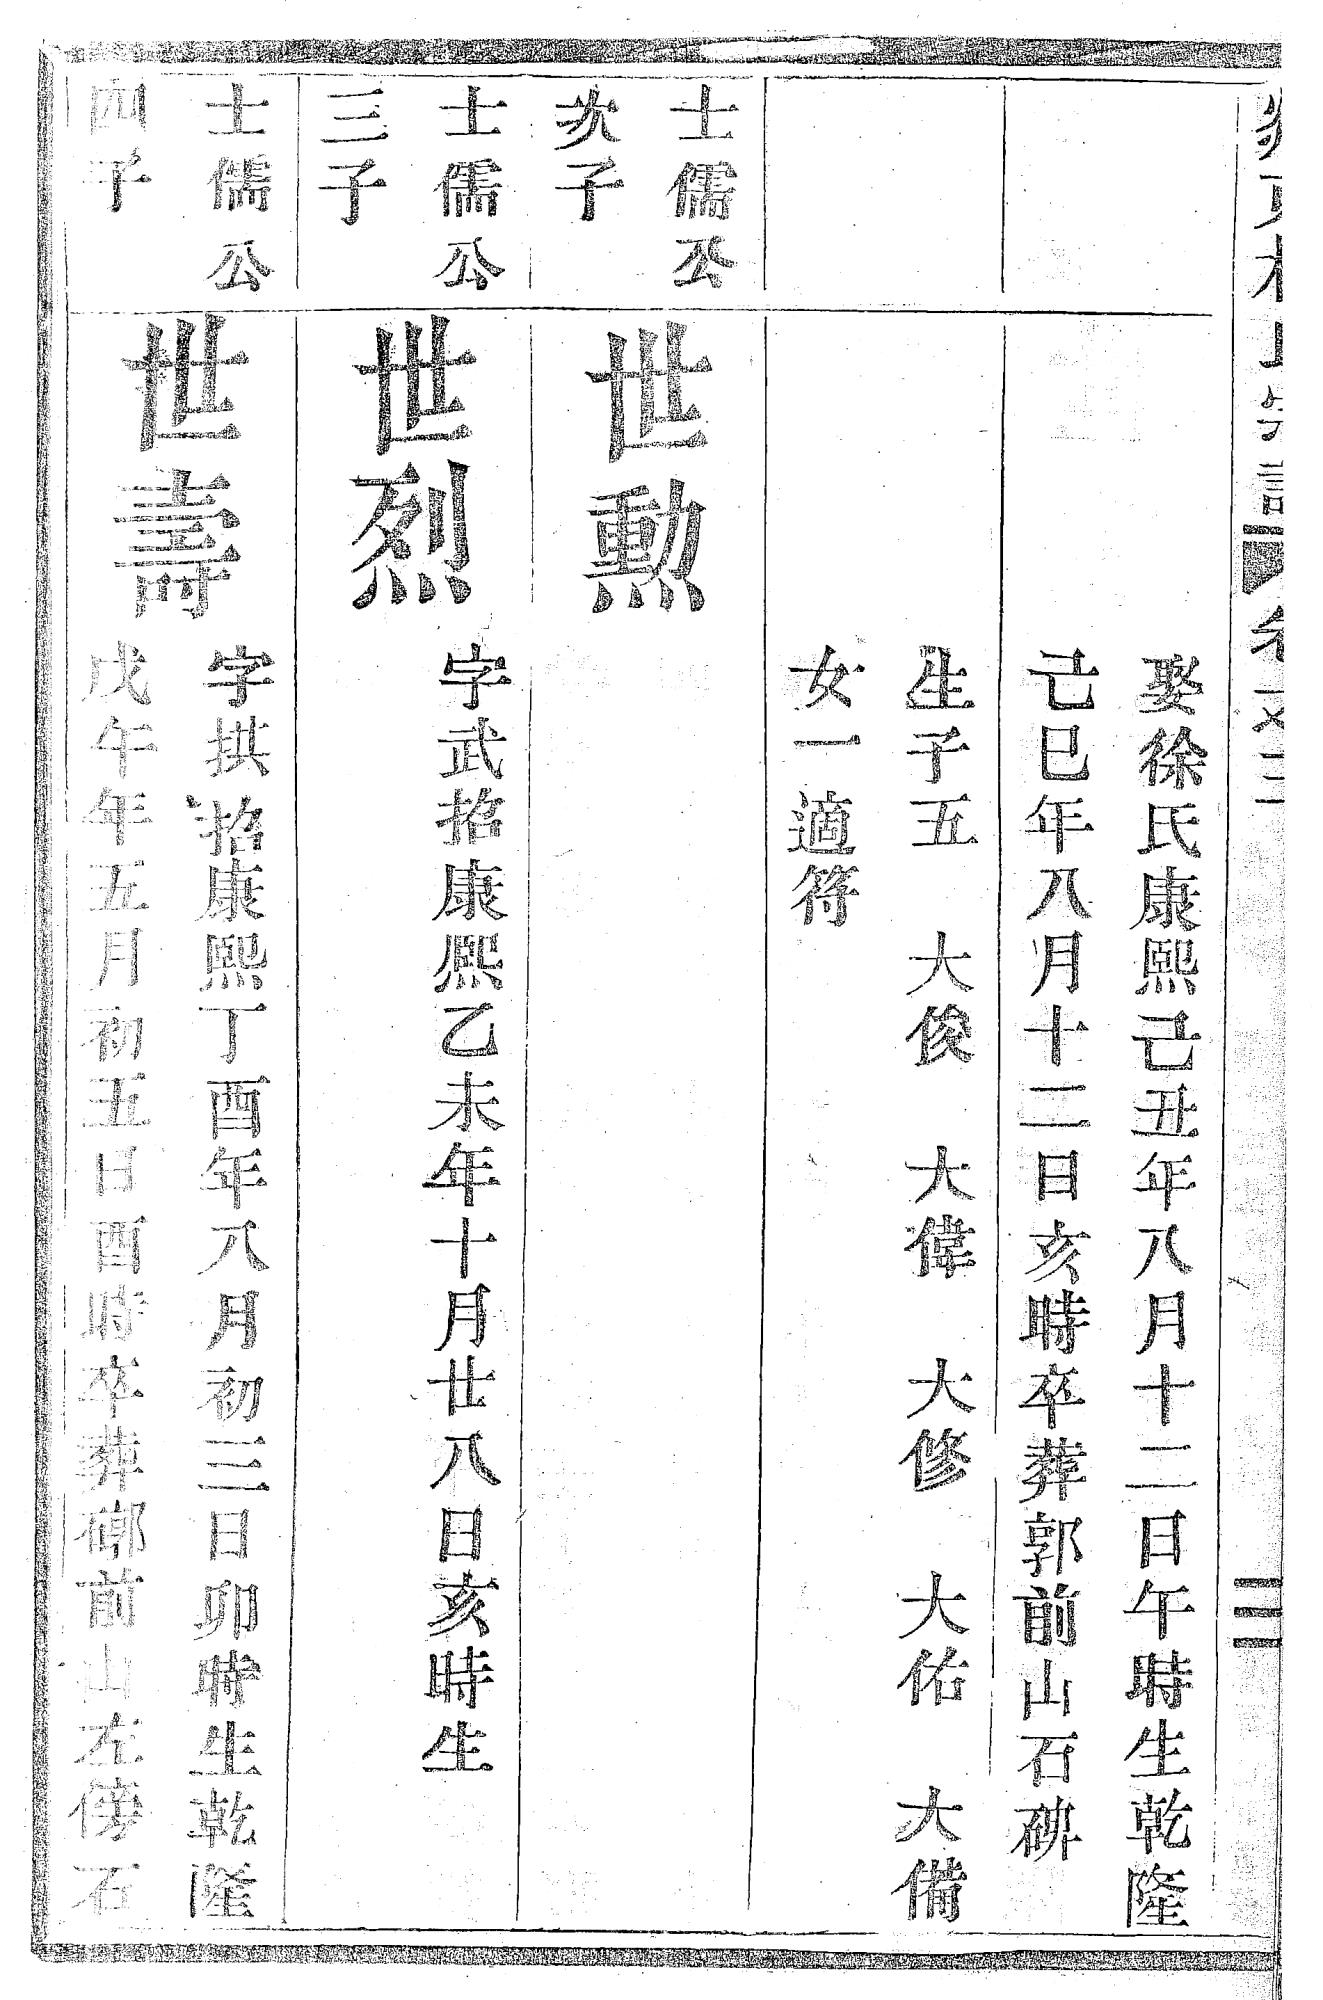 娶徐氏康熙己丑年八月十二日午時生乾隆
己巳年八月十二日亥時卒葬郭前山石碑
生子五 大俊 大偉 大修 大佑 大備
女一適符
士儒公
次子
世勲
士儒公
三子
世烈
字武招康熙乙未年十月廿八日亥時生
士儒公
四子
世壽
字拱招康熙丁酉年八月初三日卯時生乾隆
戊午年五月初五日酉時卒葬鄉前山左傍石